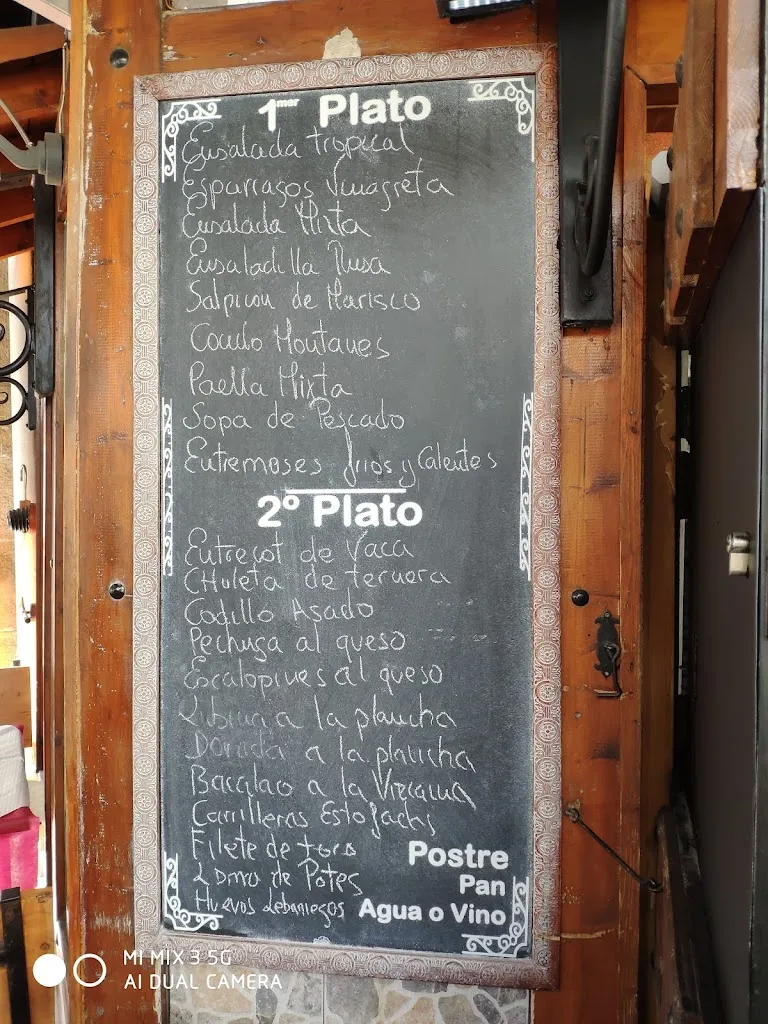 1mer Plato
Ensalada tropical
Esparragos Vinagreta
Ensalada Mixta
Ensaladilla Rusa
Salpicon de Marisco
Cocido Montañes
Paella Mixta
Sopa de Pescado
Entremeses frios y Calientes
2º Plato
Entrecot de Vaca
CHuleta de ternera
Codillo Asado
Pechuga al queso
Escalopines al queso
Lubina a la plancha
Dorada a la plancha
Bacalao a la Vizcaina
Carrilleras Estofadas
Filete de toro
Lomo de Potes
Huevos Lebaniegos
Postre
Pan
Agua o Vino
MI MIX 3 5G
AI DUAL CAMERA